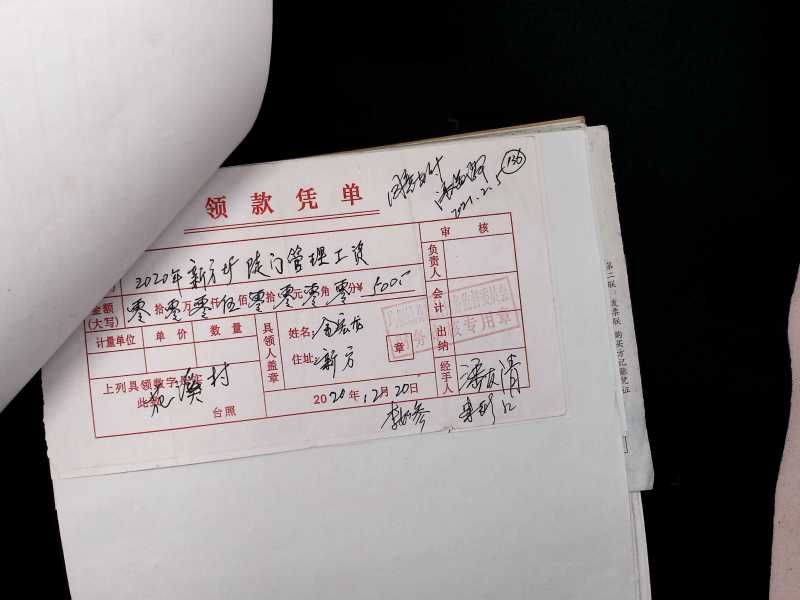 136
2021.2.5
领款凭单
审核
2020年新方圩陡门管理工资
负责人
金额(大写) 零拾零万零仟伍佰零拾零元零角零分¥ 500.-
会计
计量单位 单价 数量
具领人盖章
姓名:
章
出纳
专用章
住址: 新方
上列具领数字是实
此致
施溪村
台照
2020年12月20日
经手人
第二联:发票联 购买方记账凭证